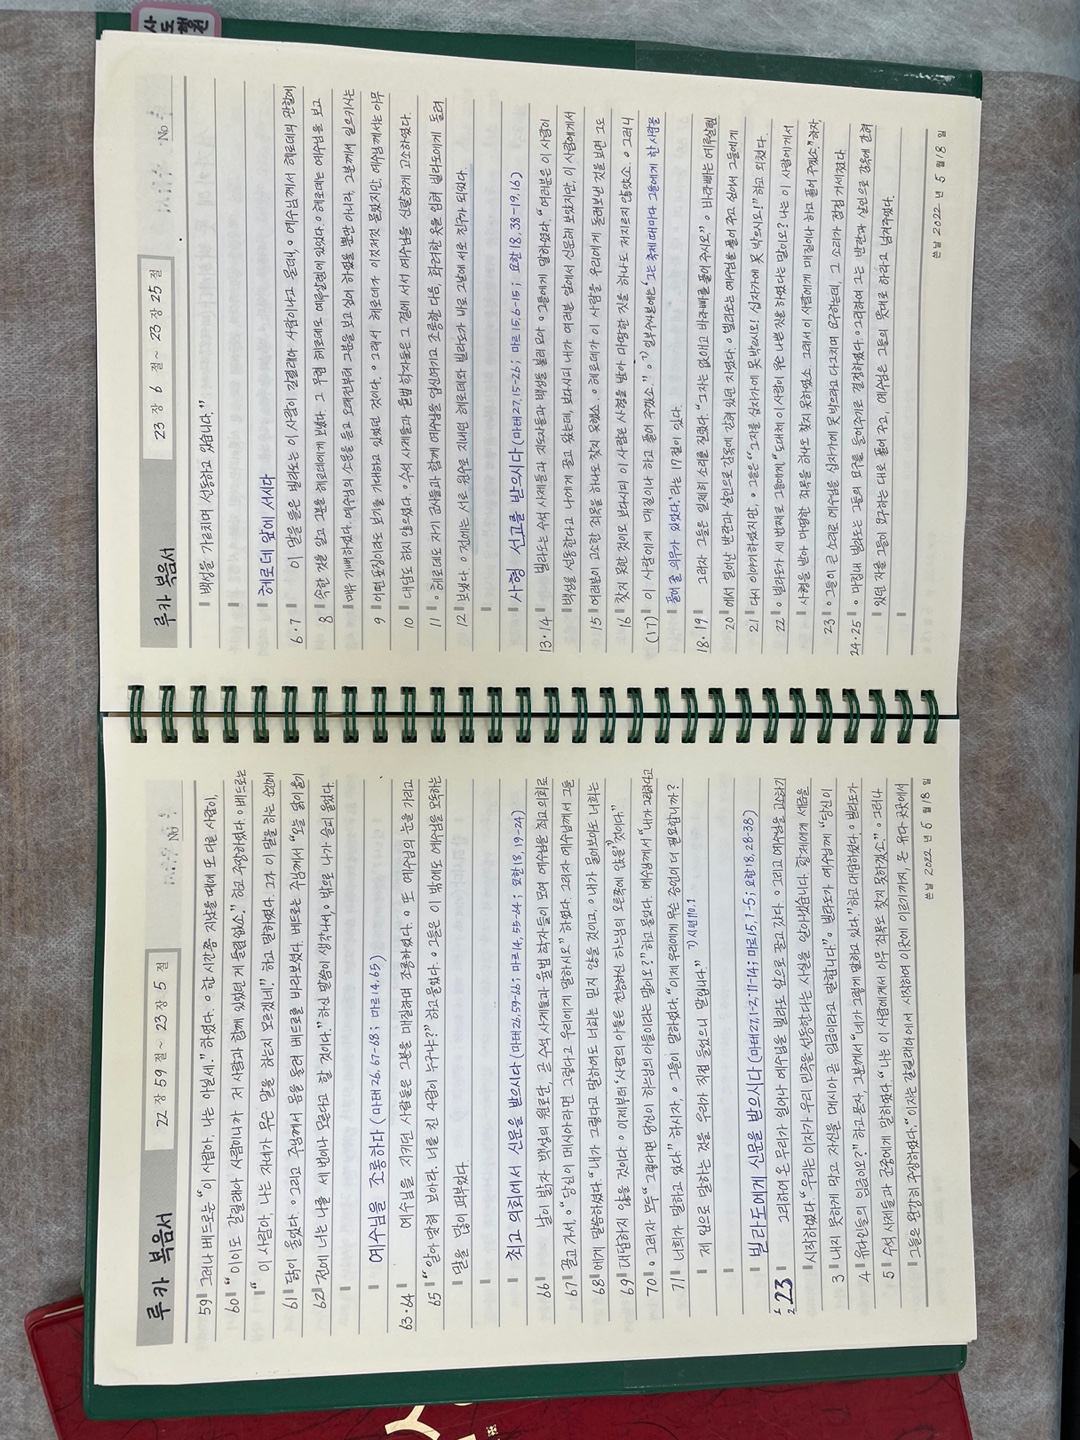 사도행전
루카 복음서
22장 59절 ~ 23장 5절
No
59 그러나 베드로는 “이 사람아, 나는 아닐세.” 하였다. ◦ 한 시간쯤 지났을 때에 또 다른 사람이,
60 “이이도 갈릴래아 사람이니까 저 사람과 함께 있었던 게 틀림없소.” 하고 주장하였다. ◦ 베드로는
“이 사람아, 나는 자네가 무슨 말을 하는지 모르겠네.” 하고 말하였다. 그가 이 말을 하는 순간에
61 닭이 울었다. ◦ 그리고 주님께서 몸을 돌려 베드로를 바라보셨다. 베드로는 주님께서 “오늘 닭이 울기
62 전에 너는 나를 세 번이나 모른다고 할 것이다.” 하신 말씀이 생각나서, ◦ 밖으로 나가 슬피 울었다.
예수님을 조롱하다 (마태 26, 67-68; 마르 14, 65)
63·64 예수님을 지키던 사람들은 그분을 매질하며 조롱하였다. ◦ 또 예수님의 눈을 가리고
65 “알아맞혀 보아라. 너를 친 사람이 누구냐?” 하고 물었다. ◦ 그들은 이 밖에도 예수님을 모독하는
말을 많이 퍼부었다.
최고 의회에서 신문을 받으시다 (마태 26, 59-66; 마르 14, 55-64; 요한 18, 19-24)
66 날이 밝자 백성의 원로단, 곧 수석 사제들과 율법 학자들이 모여 예수님을 최고 의회로
67 끌고 가서, ◦ “당신이 메시아라면 그렇다고 우리에게 말하시오.” 하였다. 그러자 예수님께서 그들
68 에게 말씀하셨다. “내가 그렇다고 말하여도 너희는 믿지 않을 것이고, ◦ 내가 물어보아도 너희는
69 대답하지 않을 것이다. ◦ 이제부터 ‘사람의 아들은 전능하신 하느님의 오른쪽에 앉을’ 것이다.”
70 ◦ 그러자 모두 “그렇다면 당신이 하느님의 아들이라는 말이오?” 하고 물었다. 예수님께서 “내가 그렇다고
71 너희가 말하고 있다.” 하시자, ◦ 그들이 말하였다. “이제 우리에게 무슨 증언이 더 필요합니까?
제 입으로 말하는 것을 우리가 직접 들었으니 말입니다.” ㄱ) 시편 110,1
빌라도에게 신문을 받으시다 (마태 27, 1-2; 11-14; 마르 15, 1-5; 요한 18, 28-38)
1 2 23 그리하여 온 무리가 일어나 예수님을 빌라도 앞으로 끌고 갔다. ◦ 그리고 예수님을 고소하기
시작하였다. “우리는 이자가 우리 민족을 선동한다는 사실을 알아냈습니다. 황제에게 세금을
3 내지 못하게 막고 자신을 메시아 곧 임금이라고 말합니다.” ◦ 빌라도가 예수님께 “당신이
4 유다인들의 임금이오?” 하고 묻자, 그분께서 “네가 그렇게 말하고 있다.” 하고 대답하셨다. ◦ 빌라도가
5 수석 사제들과 군중에게 말하였다. “나는 이 사람에게서 아무 죄목도 찾지 못하겠소.” ◦ 그러나
그들은 완강히 주장하였다. “이자는 갈릴래아에서 시작하여 이곳에 이르기까지, 온 유다 곳곳에서
쓴날 2022년 5월 18일
루카 복음서
23장 6절 ~ 23장 25절
No
백성을 가르치며 선동하고 있습니다.”
헤로데 앞에 서시다
6·7 이 말을 들은 빌라도는 이 사람이 갈릴래아 사람이냐고 묻더니, ◦ 예수님께서 헤로데의 관할에
8 속한 것을 알고 그분을 헤로데에게 보냈다. 그 무렵 헤로데도 예루살렘에 있었다. ◦ 헤로데는 예수님을 보고
매우 기뻐하였다. 예수님의 소문을 듣고 오래전부터 그분을 보고 싶어 하였을 뿐만 아니라, 그분께서 일으키시는
9 어떤 표징이라도 보기를 기대하고 있었던 것이다. ◦ 그래서 헤로데가 이것저것 물었지만, 예수님께서는 아무
10 대답도 하지 않으셨다. ◦ 수석 사제들과 율법 학자들은 그 곁에 서서 예수님을 신랄하게 고소하였다.
11 ◦ 헤로데도 자기 군사들과 함께 예수님을 업신여기고 조롱한 다음, 화려한 옷을 입혀 빌라도에게 돌려
12 보냈다. ◦ 전에는 서로 원수로 지내던 헤로데와 빌라도가 바로 그날에 서로 친구가 되었다.
사형 선고를 받으시다 (마태 27, 15-26; 마르 15, 6-15; 요한 18, 38-19, 16)
13·14 빌라도는 수석 사제들과 지도자들과 백성을 불러 모아 ◦ 그들에게 말하였다. “여러분은 이 사람이
백성을 선동한다고 나에게 끌고 왔는데, 보다시피 내가 여러분 앞에서 신문해 보았지만, 이 사람에게서
15 여러분이 고소한 죄목을 하나도 찾지 못했소. ◦ 헤로데가 이 사람을 우리에게 돌려보낸 것을 보면 그도
16 찾지 못한 것이오. 보다시피 이 사람은 사형을 받아 마땅한 짓을 하나도 저지르지 않았소. ◦ 그러니
(17) 이 사람에게 매질이나 하고 풀어 주겠소.” ◦ ㄱ) 일부 수사본에는 ‘그는 축제 때마다 그들에게 한 사람을
풀어 줄 의무가 있었다.’라는 17절이 있다.
18·19 그러자 그들은 일제히 소리를 질렀다. “그자는 없애고 바라빠를 풀어 주시오.” ◦ 바라빠는 예루살렘
20 에서 일어난 반란과 살인으로 감옥에 갇혀 있던 자였다. ◦ 빌라도는 예수님을 풀어 주고 싶어서 그들에게
21 다시 이야기하였지만, ◦ 그들은 “그자를 십자가에 못 박으시오! 십자가에 못 박으시오!” 하고 외쳤다.
22 ◦ 빌라도가 세 번째로 그들에게 “도대체 이 사람이 무슨 나쁜 짓을 하였다는 말이오? 나는 이 사람에게서
사형을 받아 마땅한 죄목을 하나도 찾지 못하였소. 그래서 이 사람에게 매질이나 하고 풀어 주겠소.” 하자,
23 ◦ 그들이 큰 소리로 예수님을 십자가에 못 박으라고 다그치며 요구하는데, 그 소리가 점점 거세졌다.
24·25 ◦ 마침내 빌라도는 그들의 요구를 들어주기로 결정하였다. ◦ 그리하여 그는 반란과 살인으로 감옥에 갇혀
있던 자를 그들이 요구하는 대로 풀어 주고, 예수님은 그들의 뜻대로 하라고 넘겨주었다.
쓴날 2022년 5월 18일